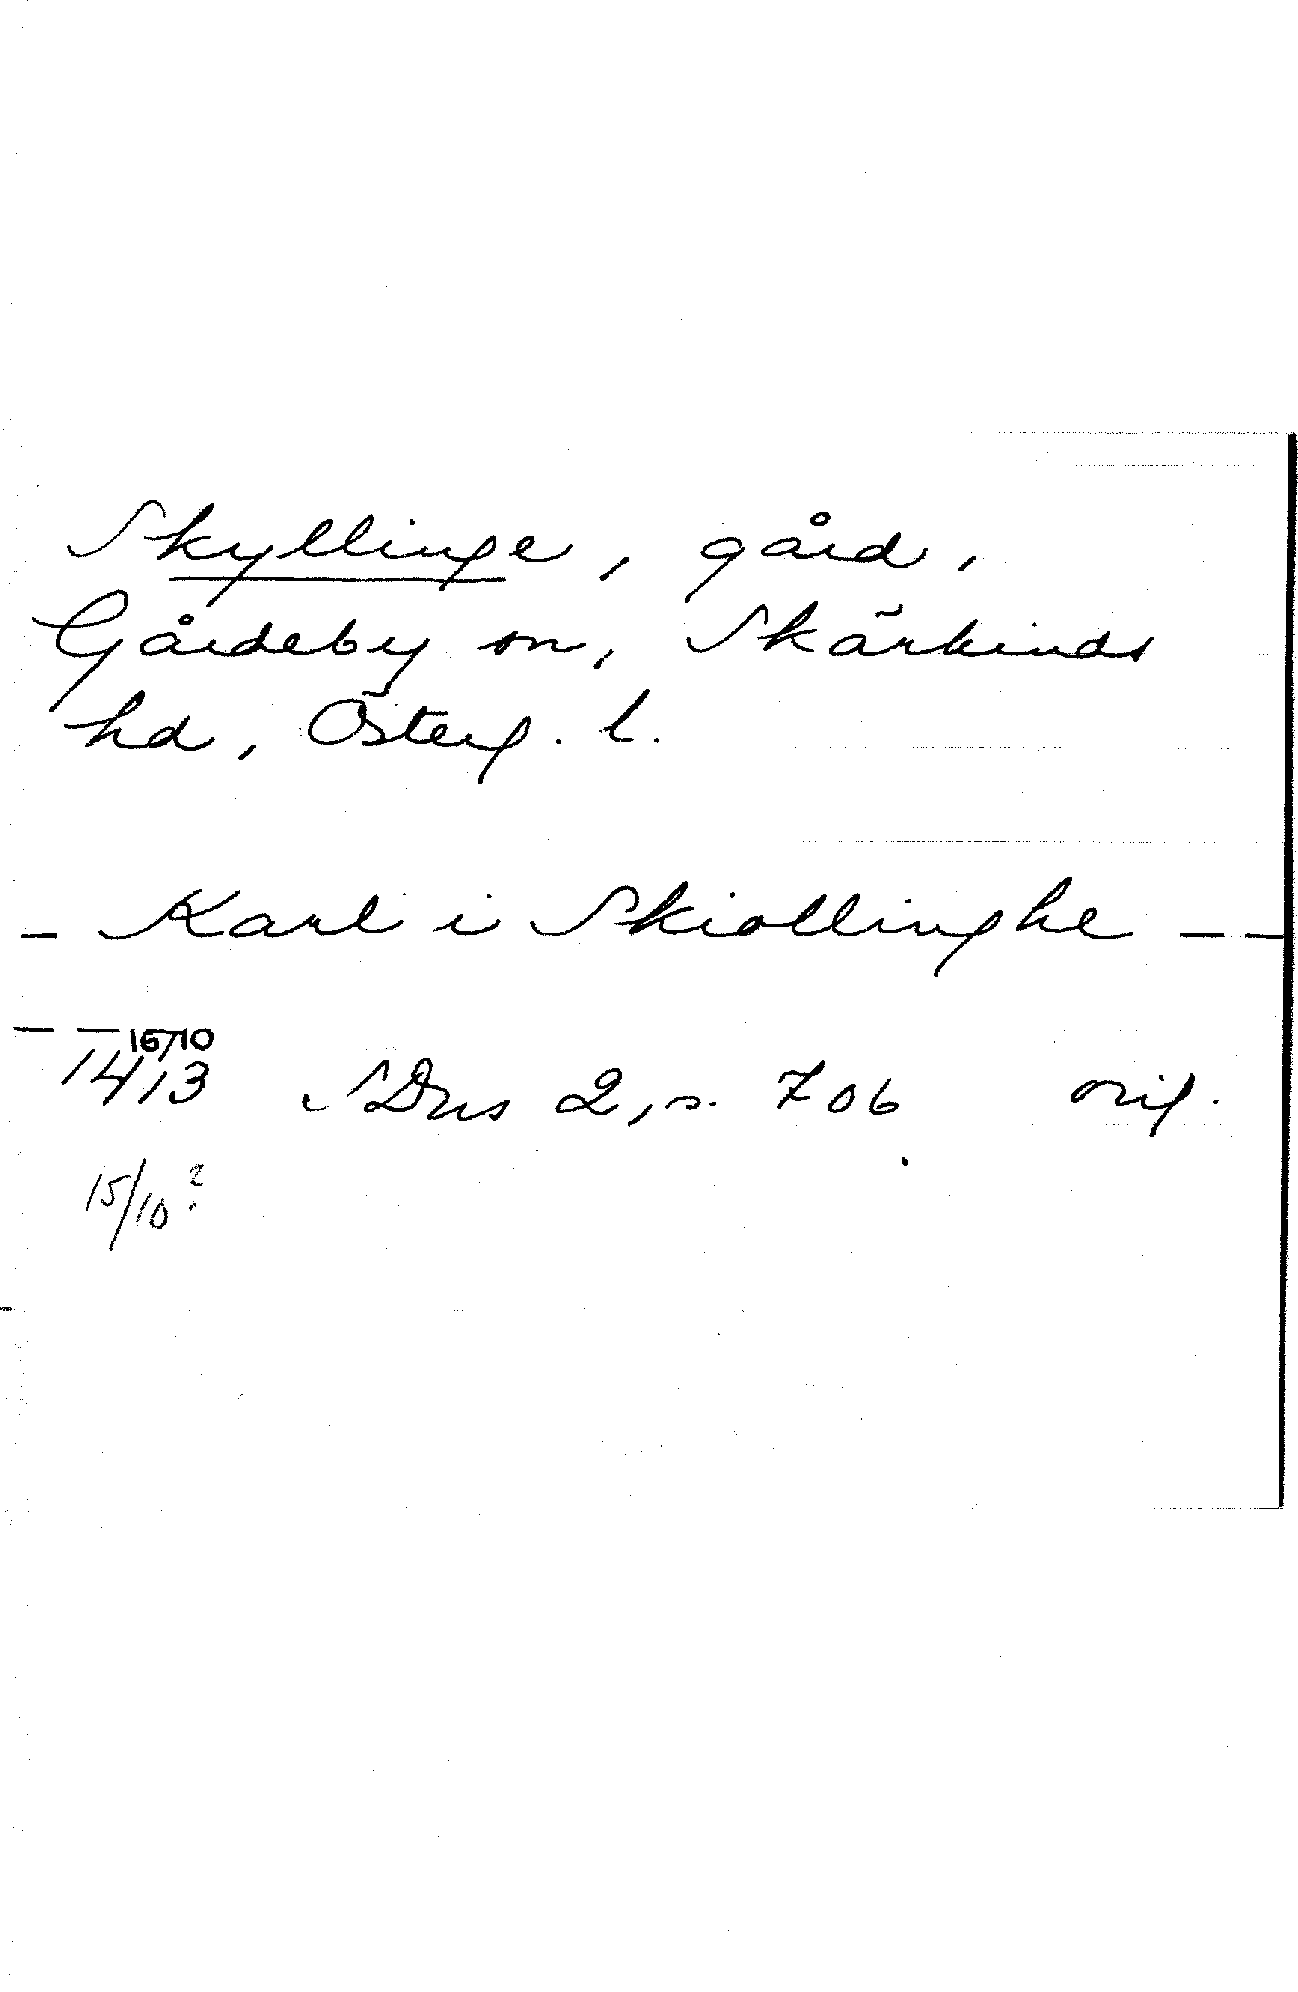 Skyllinge, gård,
Gårdeby sn, Skärkinds
hd, Österg. l.
- Karl i Skiollinghe - -
- - 16/10
1413 SDns 2, s. 706 orig.
15/10?